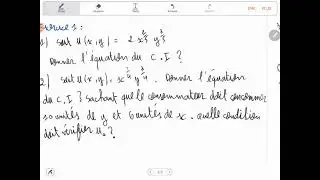 Exercice 1:
1) soit U(x,y) = 2 x^{2/3} y^{2/3}
Donner l'équation du C.I ?
2) soit U(x,y) = x^{1/4} y^{3/4}. Donner l'équation
du C.I ? sachant que le consommateur doit consommer
10 unités de y et 6 unités de x. quelle condition
doit vérifier U₀ ?